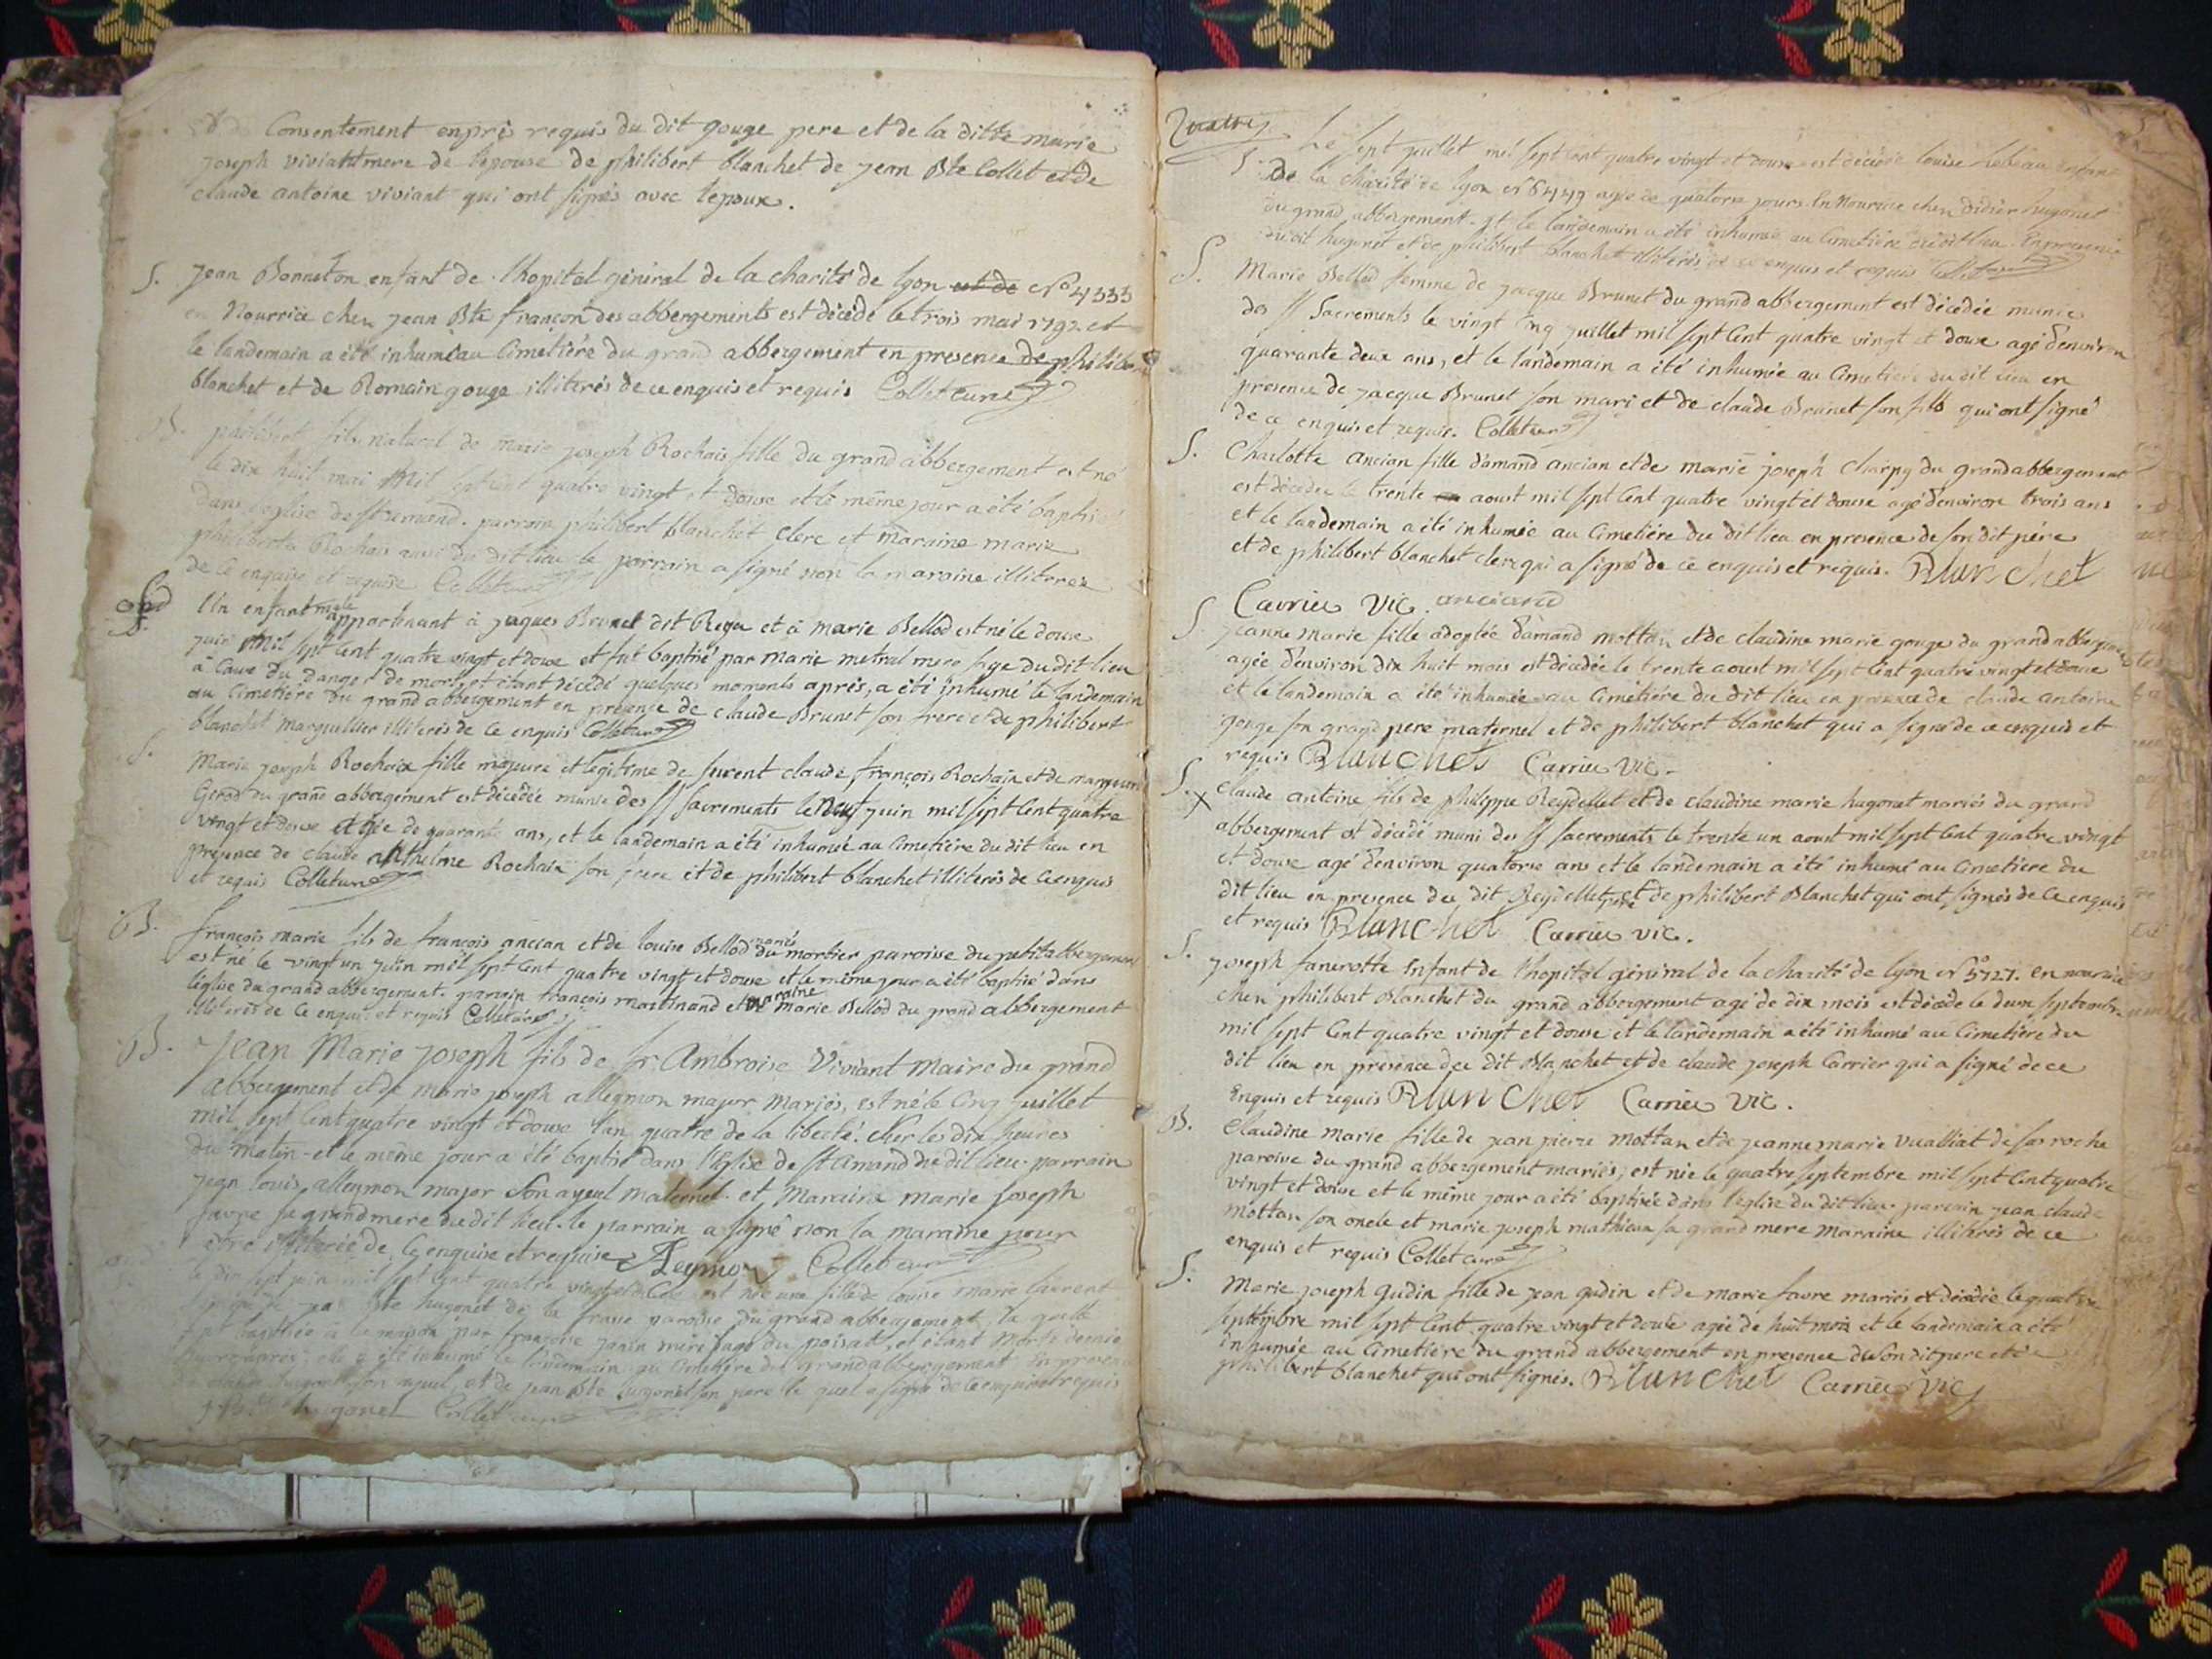 Consentement enpris requis du dit gouge pere et de la ditte marie
joseph viviant mere de l'epouse de philibert blanchet de jean Bte Collet et de
claude antoine viviant qui ont signés avec l'epoux.
S. jean Bonneton enfant de l'hopital général de la charité de lyon et de N° 4333
en Nourrice chez jean Bte françon des abbergements est décédé le trois mai 1792 et
le landemain a été inhumé au Cimetière du grand abbergement en presence de philibe
blanchet et de Romain gouge illiterés de ce enquis et requis Collet curé
B. philibert fils naturel de marie joseph Rochaix fille du grand abbergement est né
le dix huit mai Mil sept cent quatre vingt et douze et le même jour a été baptisé
dans l'eglise de st amand. parrain philibert blanchet clerc et maraine marie
philiberte Rochaix aussi du dit lieu le parrain a signé non la maraine illiterée
de ce enquise et requise Collet curé
ond
S. Un enfant male appartenant à jaques Brunet dit Reya et à marie Bellod est né le douze
juin Mil sept Cent quatre vingt et douze et fut baptisé par marie metral mere sage du dit lieu
à Cause du danger de mort, et étant décédé quelques moments après, a été inhumé le landemain
au Cimetière du grand abbergement en présence de claude Brunet son frere et de philibert
blanchet marguillier illiterés de ce enquis Collet curé
S. Marie joseph Rochaix fille majeure et legitime de furent claude françois Rochaix et de marguerite
Gerod du grand abbergement est décédée munie des SS sacrements le neuf juin mil sept Cent quatre
vingt et douze et agée de quarante ans, et le landemain a été inhumée au Cimetière du dit lieu en
présence de claude anthelme Rochaix son frere et de philibert blanchet illiterés de ce enquis
et requis Collet curé
B. françois marie fils de françois ancian et de louise Bellod mariés du mortier paroisse du petit abbergement
est né le vingt un juin mil sept Cent quatre vingt et douze et le même jour a été baptisé dans
l'église du grand abbergement. parrain françois martinand et maraine marie Bellod du grand abbergement
illiterés de ce enquis et requis Collet curé
B. Jean Marie joseph fils de sr. Ambroise Viviant Maire du grand
abbergement et de marie joseph alleymon major Mariés, est né le Cinq juillet
mil sept Cent quatre vingt et douze l'an quatre de la liberté. sur les dix heures
du matin et le même jour a été baptisé dans l'Eglise de st Amand du dit lieu. parrain
jean louis alleymon major Son ayeul maternel. et Maraine marie joseph
favre sa grand mere du dit lieu. le parrain a signé non la maraine pour
etre illiterée de ce enquise et requise Alleymon Collet curé
le dix sept juin mil sept Cent quatre vingt et douze est née une fille de louise marie laurent
hugonet de la paroisse du grand abbergement, la quelle
fut baptisée à la maison par françoise janin mere sage du poisat, et étant morte demie
heure après, elle a été inhumée le landemain au Cimetière du grand abbergement En presence
hugonet son ayeul, et de jean Bte hugonet son pere le quel a signé de ce enquis et requis
hugonet Collet curé
quatre
S. Le sept juillet mil sept cent quatre vingt et douze est décédée louise lebeau enfant
de la charité de lyon N° 6449 agée de quatorze jours. En Nourrice chez didier hugonet
du grand abbergement. et le landemain a été inhumée au Cimetière du dit lieu. En presence
du dit hugonet et de philibert blanchet illiterés de ce enquis et requis Collet curé
S. Marie Bellod femme de jacque Brunet du grand abbergement est décédée munie
des SS Sacrements le vingt Cinq juillet mil sept Cent quatre vingt et douze agé d'environ
quarante deux ans, et le landemain a été inhumée au Cimetiere du dit lieu en
presence de jacque Brunet son mari et de claude Brunet son fils qui ont signé
de ce enquis et requis. Collet curé
S. Charlotte ancian fille d'amand ancian et de marie joseph Charpy du grand abbergement
est décédée le trente aoust mil sept Cent quatre vingt et douze agé d'environ trois ans
et le landemain a été inhumée au Cimetière du dit lieu en presence de son dit père
et de philibert blanchet clerc qui a signé de ce enquis et requis. Blanchet
Carrier Vic. anciand
S. jeanne marie fille adoptée d'amand mottan et de claudine marie gouge du grand abbergement
agée d'environ dix huit mois est décédée le trente aoust mil sept Cent quatre vingt et douze
et le landemain a été inhumée au Cimétière du dit lieu en presence de claude antoine
gouge son grand pere maternel et de philibert blanchet qui a signé de ce enquis et
requis Blanchet Carrier Vic.
S. X Claude antoine fils de philippe Reydellet et de claudine marie hugonet mariés du grand
abbergement est décédé muni des SS sacrements le trente un aoust mil sept Cent quatre vingt
et douze agé d'environ quatorze ans et le landemain a été inhumé au Cimetiere du
dit lieu en presence du dit Reydellet pere et de philibert Blanchet qui ont signés de ce enquis
et requis Blanchet Carrier vic.
S. joseph fanerotte Enfant de l'hopital général de la charité de lyon N° 5727. en nourrice
chez philibert Blanchet du grand abbergement agé de dix mois est décédé le deux septembre
mil sept Cent quatre vingt et douze et le landemain a été inhumé au Cimetière du
dit lieu en présence du dit Blanchet et de claude joseph Carrier qui a signé de ce
Enquis et requis Blanchet Carrier Vic.
B. Claudine marie fille de jean pierre Mottan et de jeanne marie vualliat de sus roche
paroisse du grand abbergement mariés, est née le quatre septembre mil sept Cent quatre
vingt et douze et le même jour a été baptisée dans l'église du dit lieu. parrain jean claude
Mottan son oncle et marie joseph mathieux sa grand mere Marraine illiterés de ce
enquis et requis Collet curé
S. Marie joseph gudin fille de jean gudin et de marie favre mariés est décédée le quatre
septembre mil sept Cent quatre vingt et douze agée de huit mois et le landemain a été
inhumée au Cimetière du grand abbergement en presence de son dit pere et de
philibert blanchet qui ont signés. Blanchet Carrier Vic